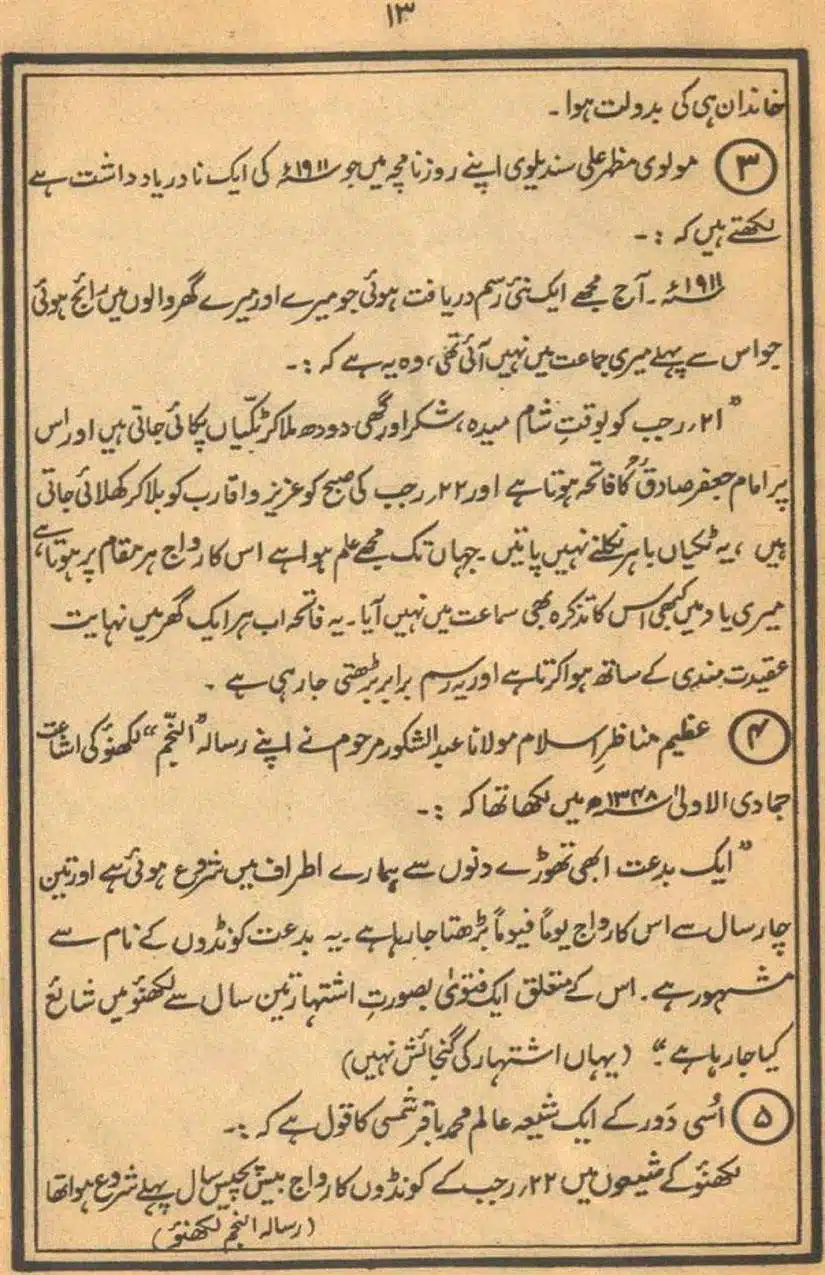 ۱۳
خاندان ہی کی بدولت ہوا ۔
۳ مولوی مظہر علی سندیلوی اپنے روزنامچہ میں جو ۱۹۱۱ء کی ایک نادر یادداشت ہے
لکھتے ہیں کہ :۔
۱۹۱۱ء ۔ آج مجھے ایک نئی رسم دریافت ہوئی جو میرے اور میرے گھر والوں میں رائج ہوئی
جو اس سے پہلے میری جماعت میں نہیں آئی تھی، وہ یہ ہے کہ :۔
”۲۱؍ رجب کو بوقتِ شام میدہ، شکر اور گھی دودھ ملا کر ٹکیّاں پکائی جاتی ہیں اور اس
پر امام جعفر صادقؒ کا فاتحہ ہوتا ہے اور ۲۲؍ رجب کی صبح کو عزیز و اقارب کو بلا کر کھلائی جاتی
ہیں ، یہ ٹکیاں باہر نکلنے نہیں پاتیں ۔ جہاں تک مجھے علم ہوا ہے اس کا رواج ہر مقام پر ہوتا ہے،
میری یاد میں کبھی اس کا تذکرہ بھی سماعت میں نہیں آیا ۔ یہ فاتحہ اب ہر ایک گھر میں نہایت
عقیدت مندی کے ساتھ ہوا کرتا ہے اور یہ رسم برابر بڑھتی جا رہی ہے ۔
۴ عظیم مناظرِ اسلام مولانا عبدالشکور مرحوم نے اپنے رسالہ ”النّجم“ لکھنؤ کی اشاعت
جمادی الاولیٰ ۱۳۴۸ھ میں لکھا تھا کہ :۔
”ایک بدعت ابھی تھوڑے دنوں سے ہمارے اطراف میں شروع ہوئی ہے اور تین
چار سال سے اس کا رواج یوماً فیوماً بڑھتا جا رہا ہے ۔ یہ بدعت کونڈوں کے نام سے
مشہور ہے ۔ اس کے متعلق ایک فتویٰ بصورتِ اشتہار تین سال سے لکھنؤ میں شائع
کیا جا رہا ہے ۔“ (یہاں اشتہار کی گنجائش نہیں)
۵ اُسی دَور کے ایک شیعہ عالم محمد باقر شمسی کا قول ہے کہ :۔
لکھنؤ کے شیعوں میں ۲۲؍ رجب کے کونڈوں کا رواج بیس پچیس سال پہلے شروع ہوا تھا
(رسالہ النجم لکھنؤ)